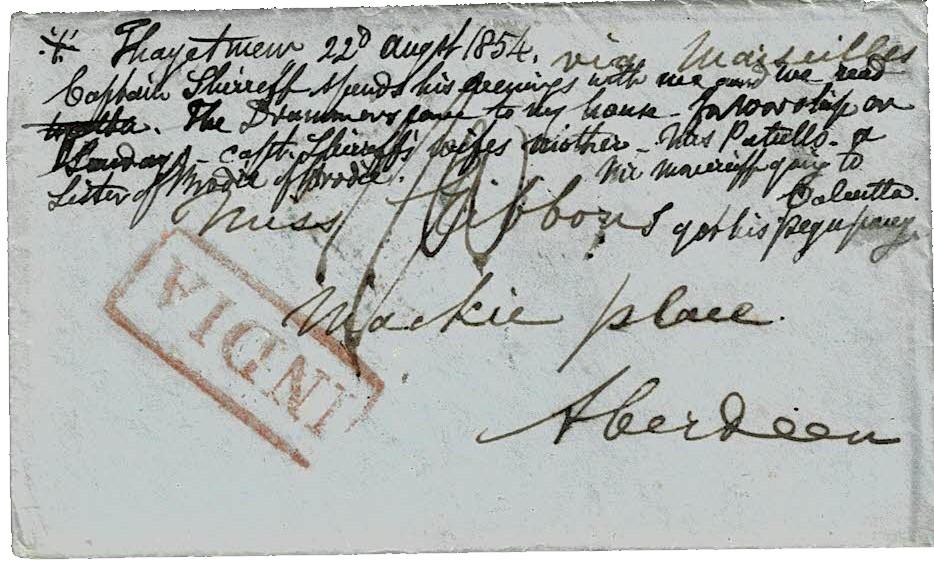 Thayetmew 22d Augst 1854.
via Marseilles
Captain Shirreff spends his evenings with me and we read
The Drummers come to my house for worship on
Sunday - Captn Shirreff's wifes mother - Mrs Patullo - a
Sister of Brodie of Brodie.
Mr Moncrieff going to
Calcutta.
got his
Miss Gibbons
Mackie place.
Aberdeen
INDIA